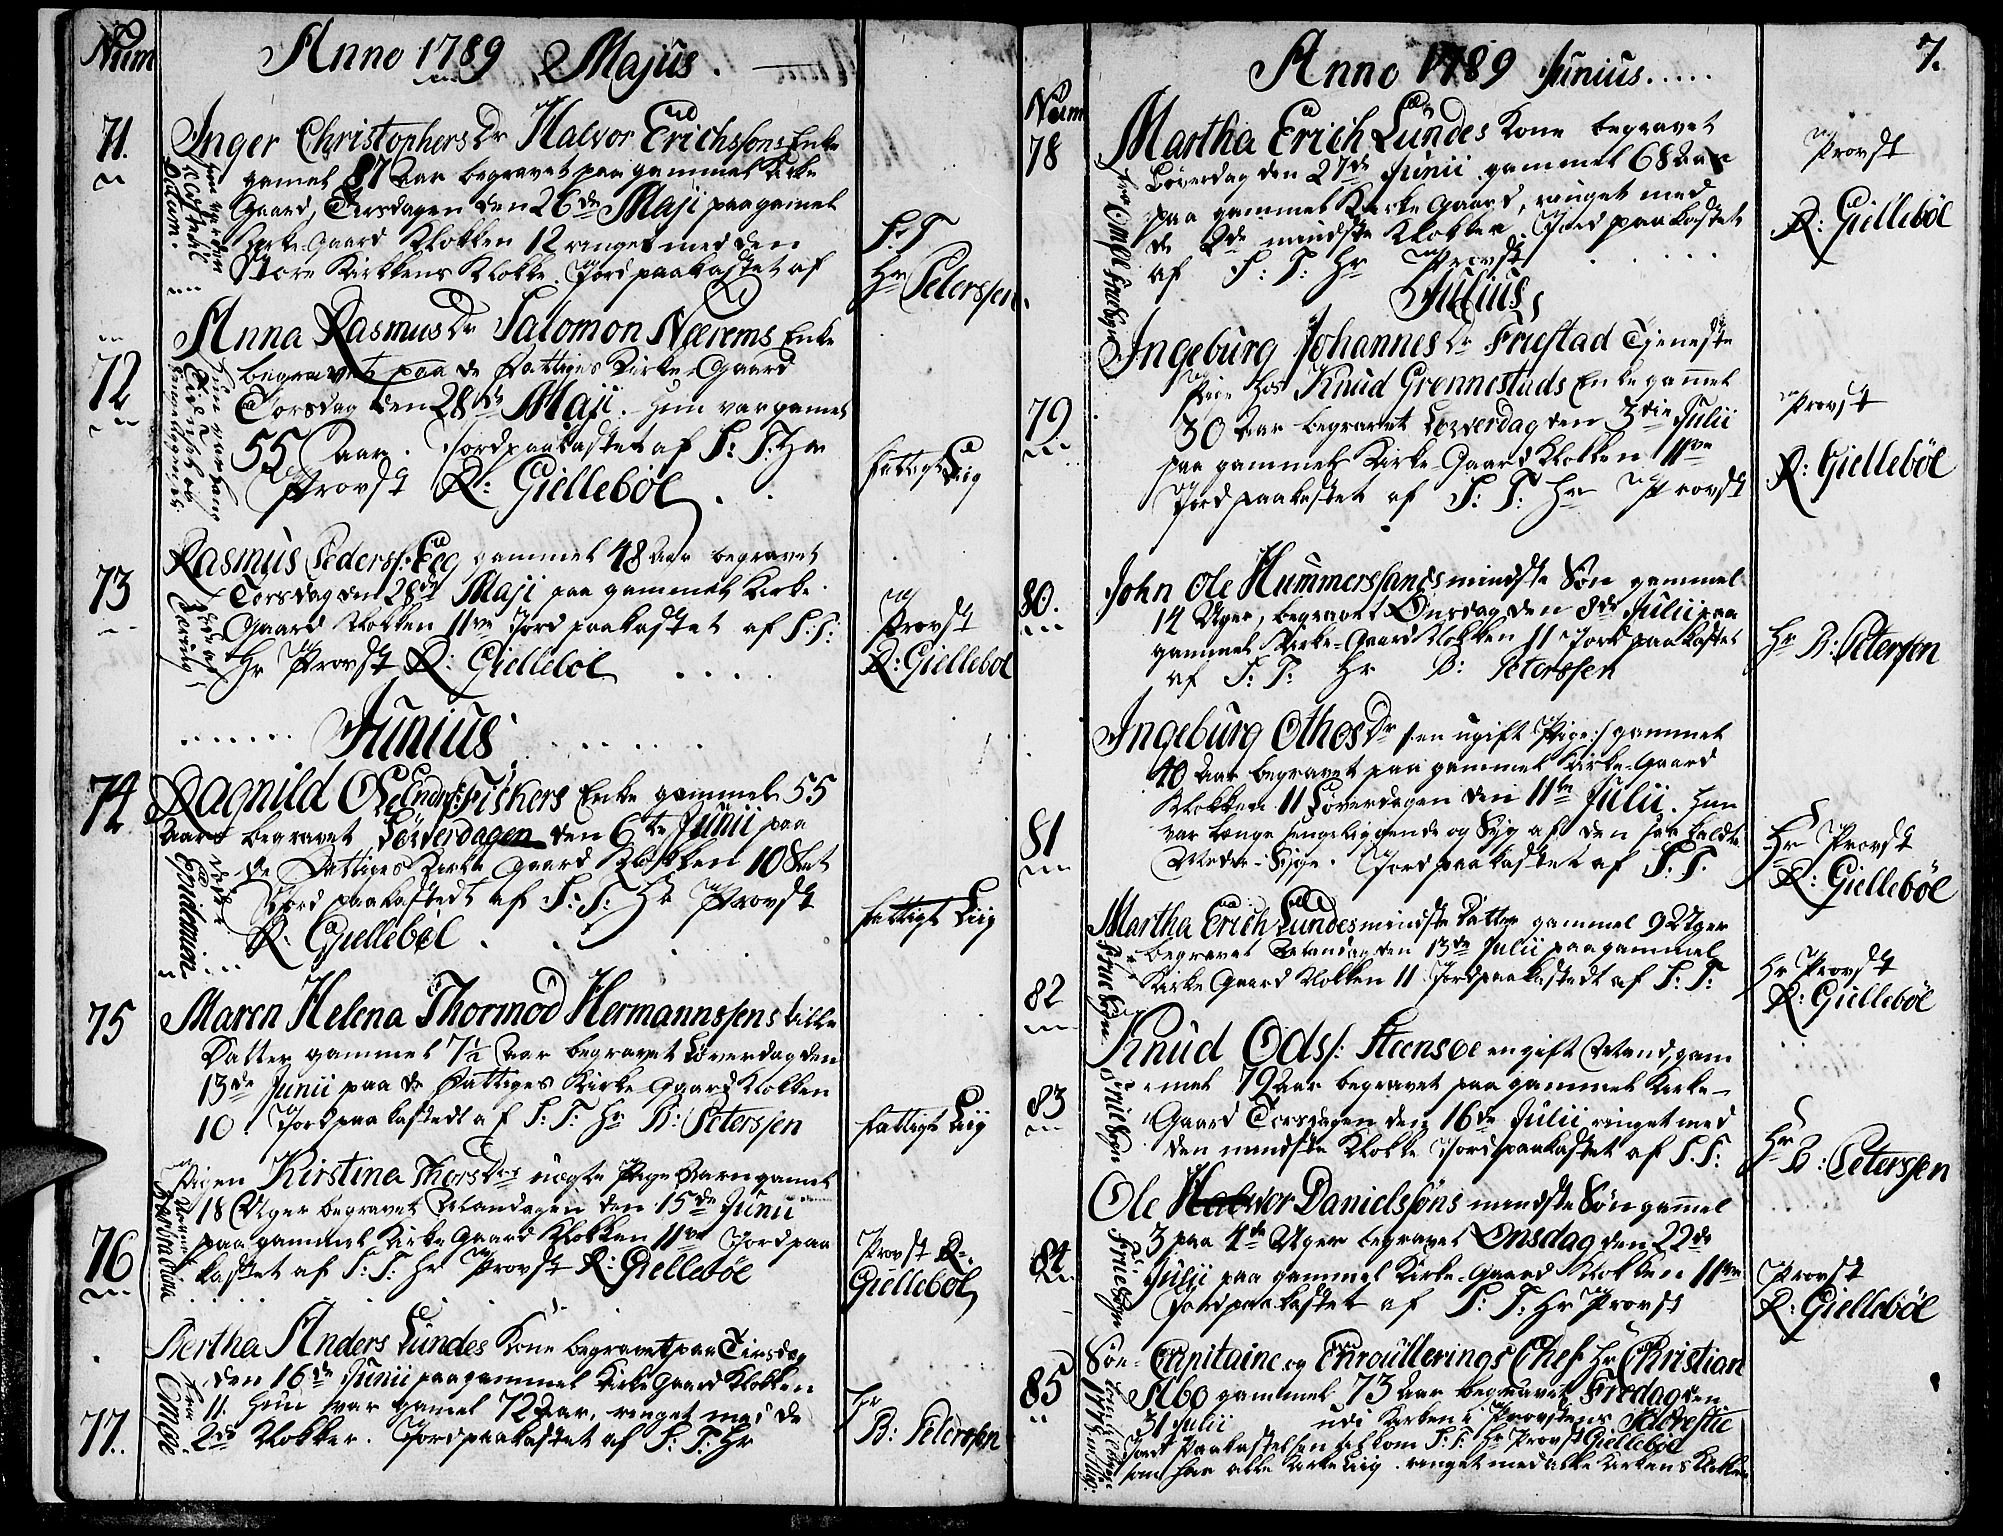 Num
Anno 1789 Majus.
71.
Inger Christophers Dr Halvor Erichssøns Enke
gamel 87 Aar begravet paa gammel Kirke
Gaard, Tirsdagen den 26de Maji paa gamel
Kirke-Gaard Klokken 12 ringet med den
Store Kirkkens Klokke. Jord paakastet af
S. T.
Hr Peterssen.
72
Anna Rasmus Dr Salomon Neerems Enke
begravet paa de Fattiges Kirke-Gaard
Torsdag den 28de Maji. Hun var gamel
55 Aar. Jord paakastet af S: T: Hr
Provst R: Giellebøl.
fattigt Liig
73
Rasmus Pederss: Eeg gammel 48 Aar begravet
Torsdag den 28de Maji paa gammel Kirke
Gaard Klokken 11ve Jord paakastet af S: T:
Hr Provst R: Giellebøl
Døde af
Tæring
Provst
R: Giellebøl
Junius
74
Ragnild Ole Endres: Fiskers Enke gammel 55
Aar begravet Løverdagen den 6te Junii paa
de Fattiges Kirke Gaard Klokken 10 Slet
Jord paakastedt af S: T: Hr Provst
R: Giellebøl
fattigt Liig
75
Maren Helena Thormod Hermannssens lille
Datter gammel 7½ Aar begravet Løverdag den
13de Junii paa de Fattiges Kirke Gaard Klokken
10. Jord paakastedt af S: T: Hr B: Peterssen
fattigt Liig
76
Pigen Kirstina Thors Drs uægte Pige Barn gamel
18 Uger begravet Mandagen den 15de Junii
paa gammel Kirke Gaard Klokken 11ve Jord paa
kastet af S: T: Hr Provst R: Giellebøl
Provst R:
Giellebøl
77.
Bertha Anders Lundes Kone begravet paa Tirsdag
den 16de Junii paa gammel Kirke Gaard Klokken
11. Hun var gamel 72 Aar, ringet med de
2de Klokker. Jord paakastet af S: T: Hr
Hr
B: Peterssen
7.
Anno 1789 Junius.....
Num
78
Martha Erich Lundes Kone begravet
Løverdag den 27de Junii gammel 68 Aar
paa gammel Kirke Gaard, ringet med
de 2de mindste Klokker. Jord paakastet
af S: T: Hr Provst
Provst
R: Giellebøl
Julius
79
Ingeburg Johannes Dr Friestad Tjeneste
Pige hos Knud Grønnestads Enke gamel
30 Aar begravet Løverdag den 3die Julii
paa gammel Kirke-Gaard Klokken 11ve
Jord paakastet af S: T: Hr Provst
Provst
R: Giellebøl
80.
John Ole Hummerssands mindste Søn gammel
14 Uger, begravet Onsdag den 8de Julii paa
gammel Kirke-Gaard Klokken 11 Jord paakastet
af S: T: Hr B: Peterssen
Hr B: Peterssen
81
Ingeburg Othos Dr /:en ugift Pige:/ gammel
40 Aar begravet paa gammel Kirke-Gaard
Klokken 11 Løverdagen den 11te Julii. Hun
var længe sengeliggende og Syg af den saa kaldte
Moder-Syge. Jord paakastet af S: T:
Hr Provst
R: Giellebøl
82
Martha Erich Lundes mindste Datter gammel 9 Uger
begravet Mandag den 13de Julii paa gammel
Kirke Gaard Klokken 11 Jord paakastedt af S: T:
Hr Provst
R: Giellebøl
83
Knud Ods: Steensøe en gift Mand, gam
mel 79 Aar begravet paa gammel Kirke-
Gaard Torsdagen den 16de Julii ringet med
den mindste Klokke Jord paakastet af S: T:
Hr
B: Peterssen
84
Ole Halvor Danielssøns mindste Søn gamel
3 paa 4de Uger begravet Onsdag den 22de
Julii paa gammel Kirke-Gaard Klokken 11ve
Jord paakastet af S: T: Hr Provst
Provst
R: Giellebøl
85
Søe-Capitaine og Enroullerings Chef Hr Christian
Abo gammel 73 Aar begravet Fredag den
31 Julii udi Kirken i Provstens
Jord Paakastelsen tilkom S: T: Hr Provst Giellebøl
som har alle Kirke Liig. ringet med alle Kirkens Klokker